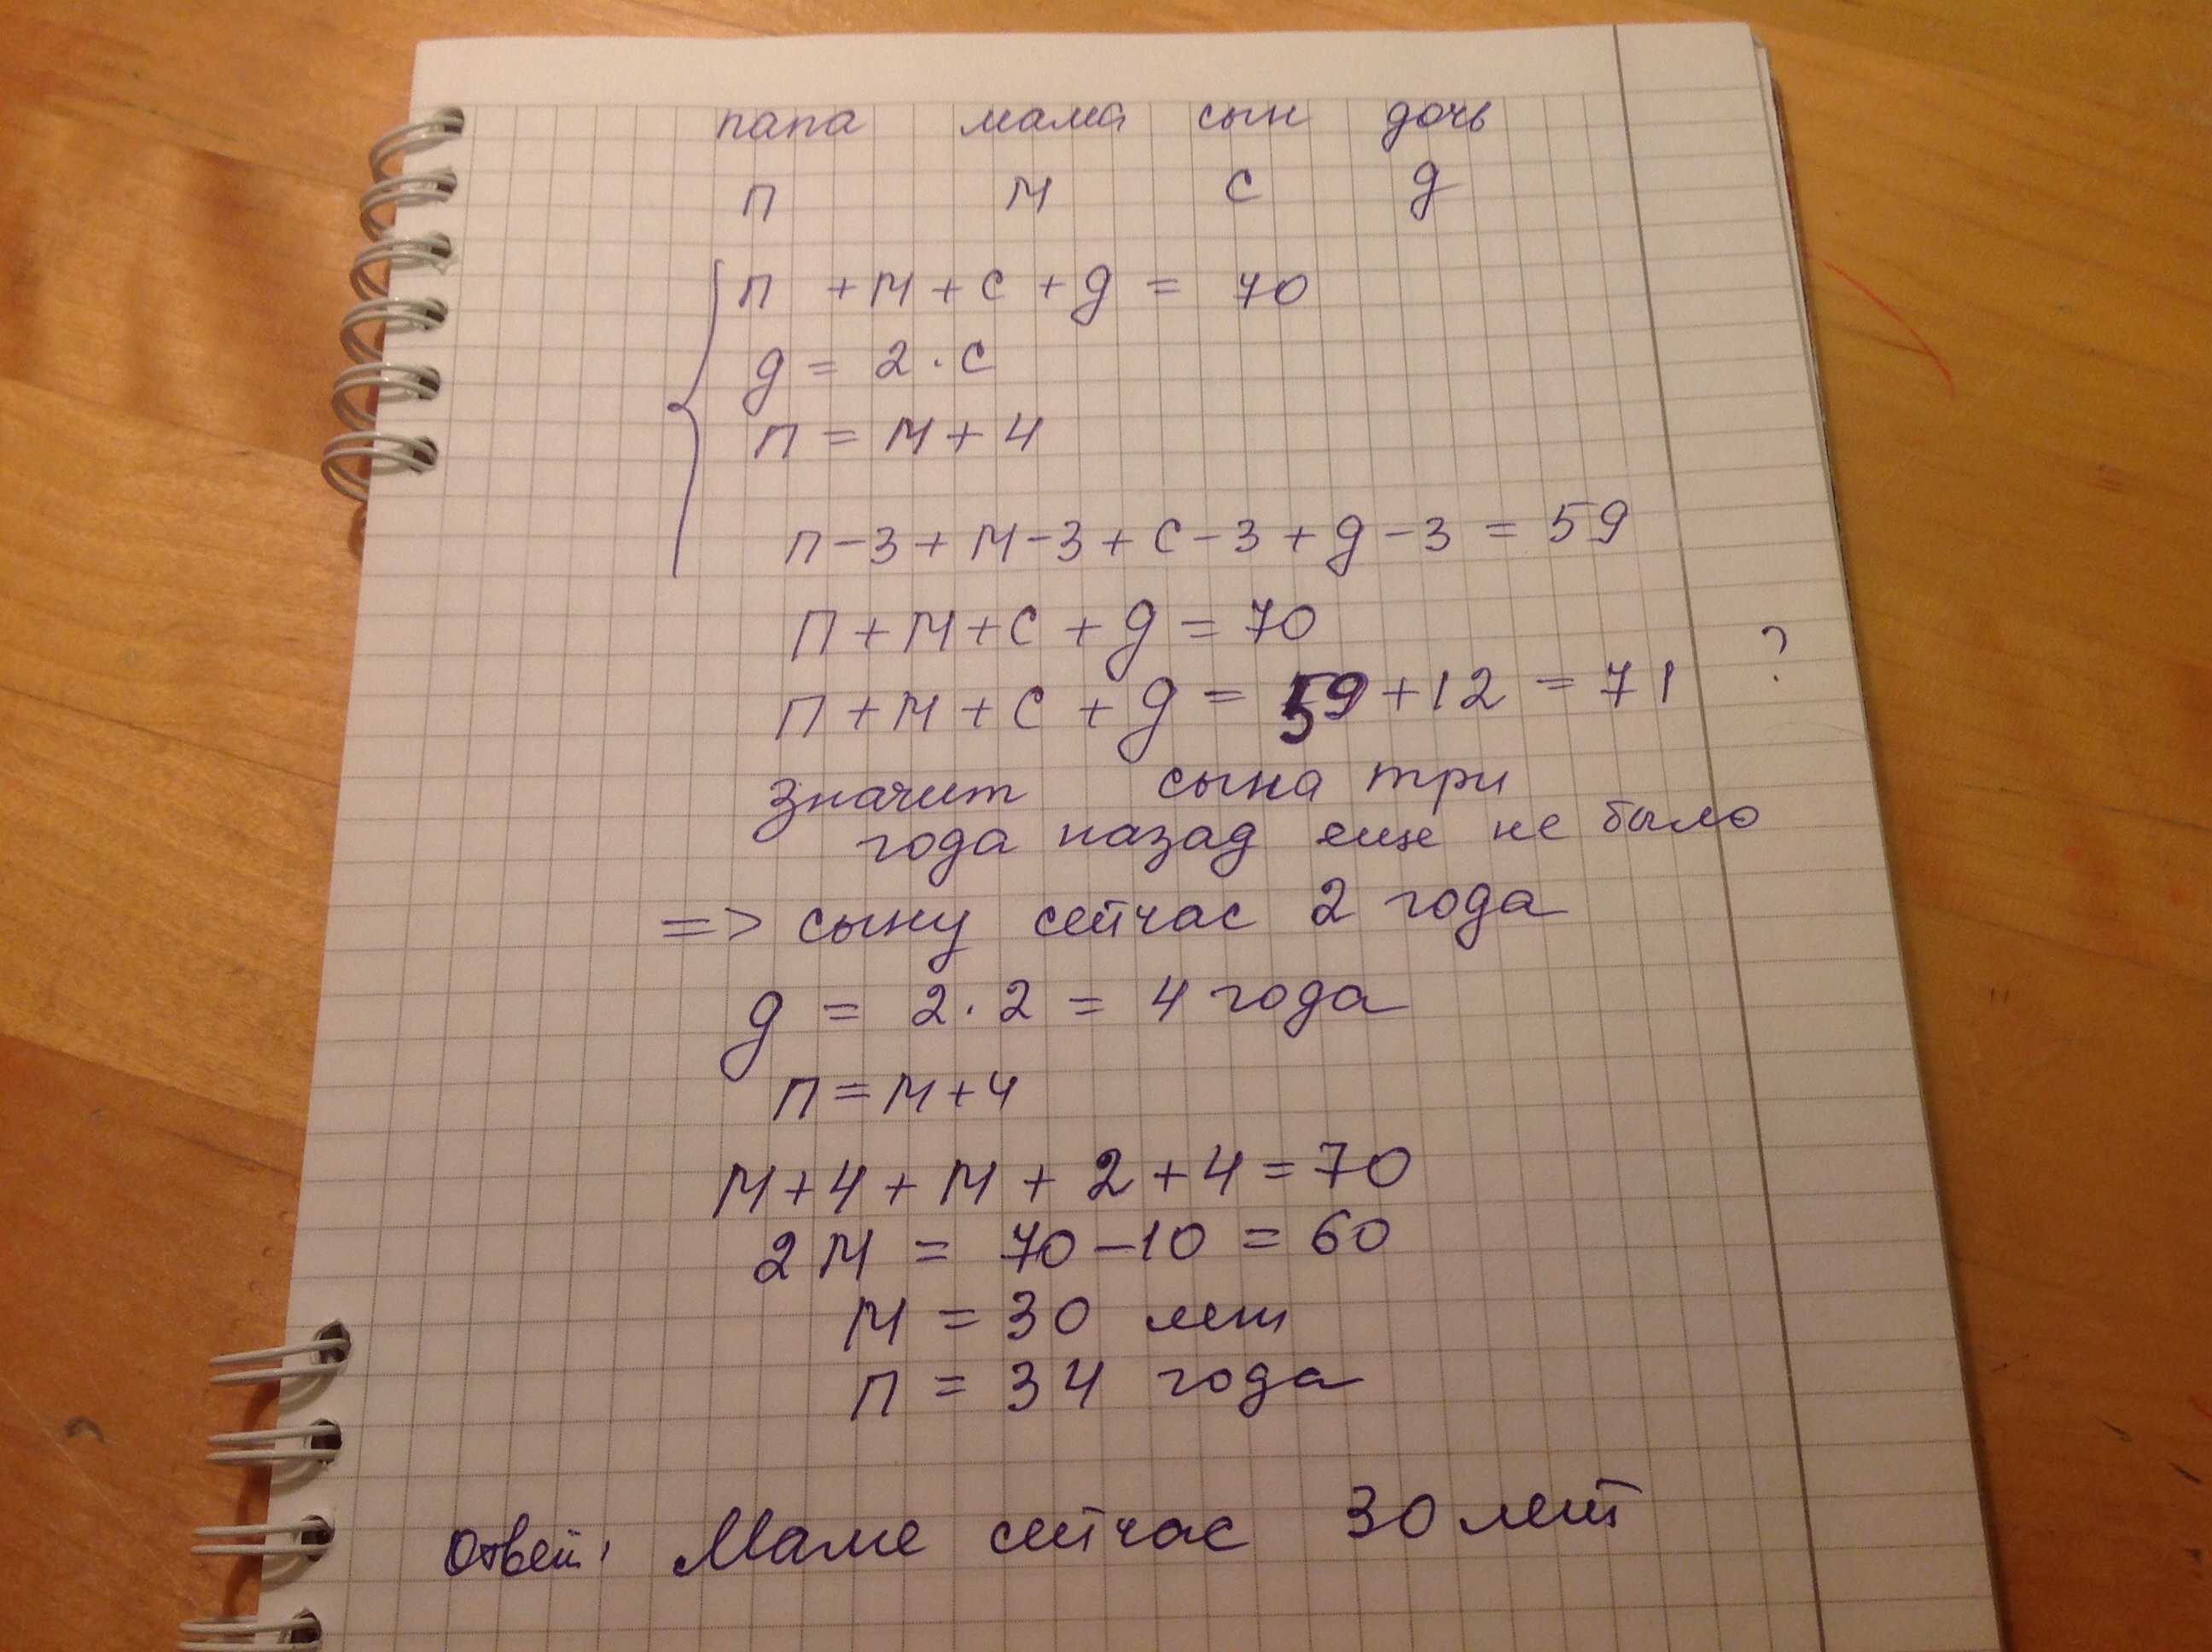 папа мама сын дочь
п м с д
п + м + с + д = 70
д = 2 · с
п = м + 4
п - 3 + м - 3 + с - 3 + д - 3 = 59
п + м + с + д = 70
п + м + с + д = 59 + 12 = 71 ?
значит сына три
года назад еще не было
=> сыну сейчас 2 года
д = 2 · 2 = 4 года
п = м + 4
м + 4 + м + 2 + 4 = 70
2 м = 70 - 10 = 60
м = 30 лет
п = 34 года
Ответ: Маме сейчас 30 лет